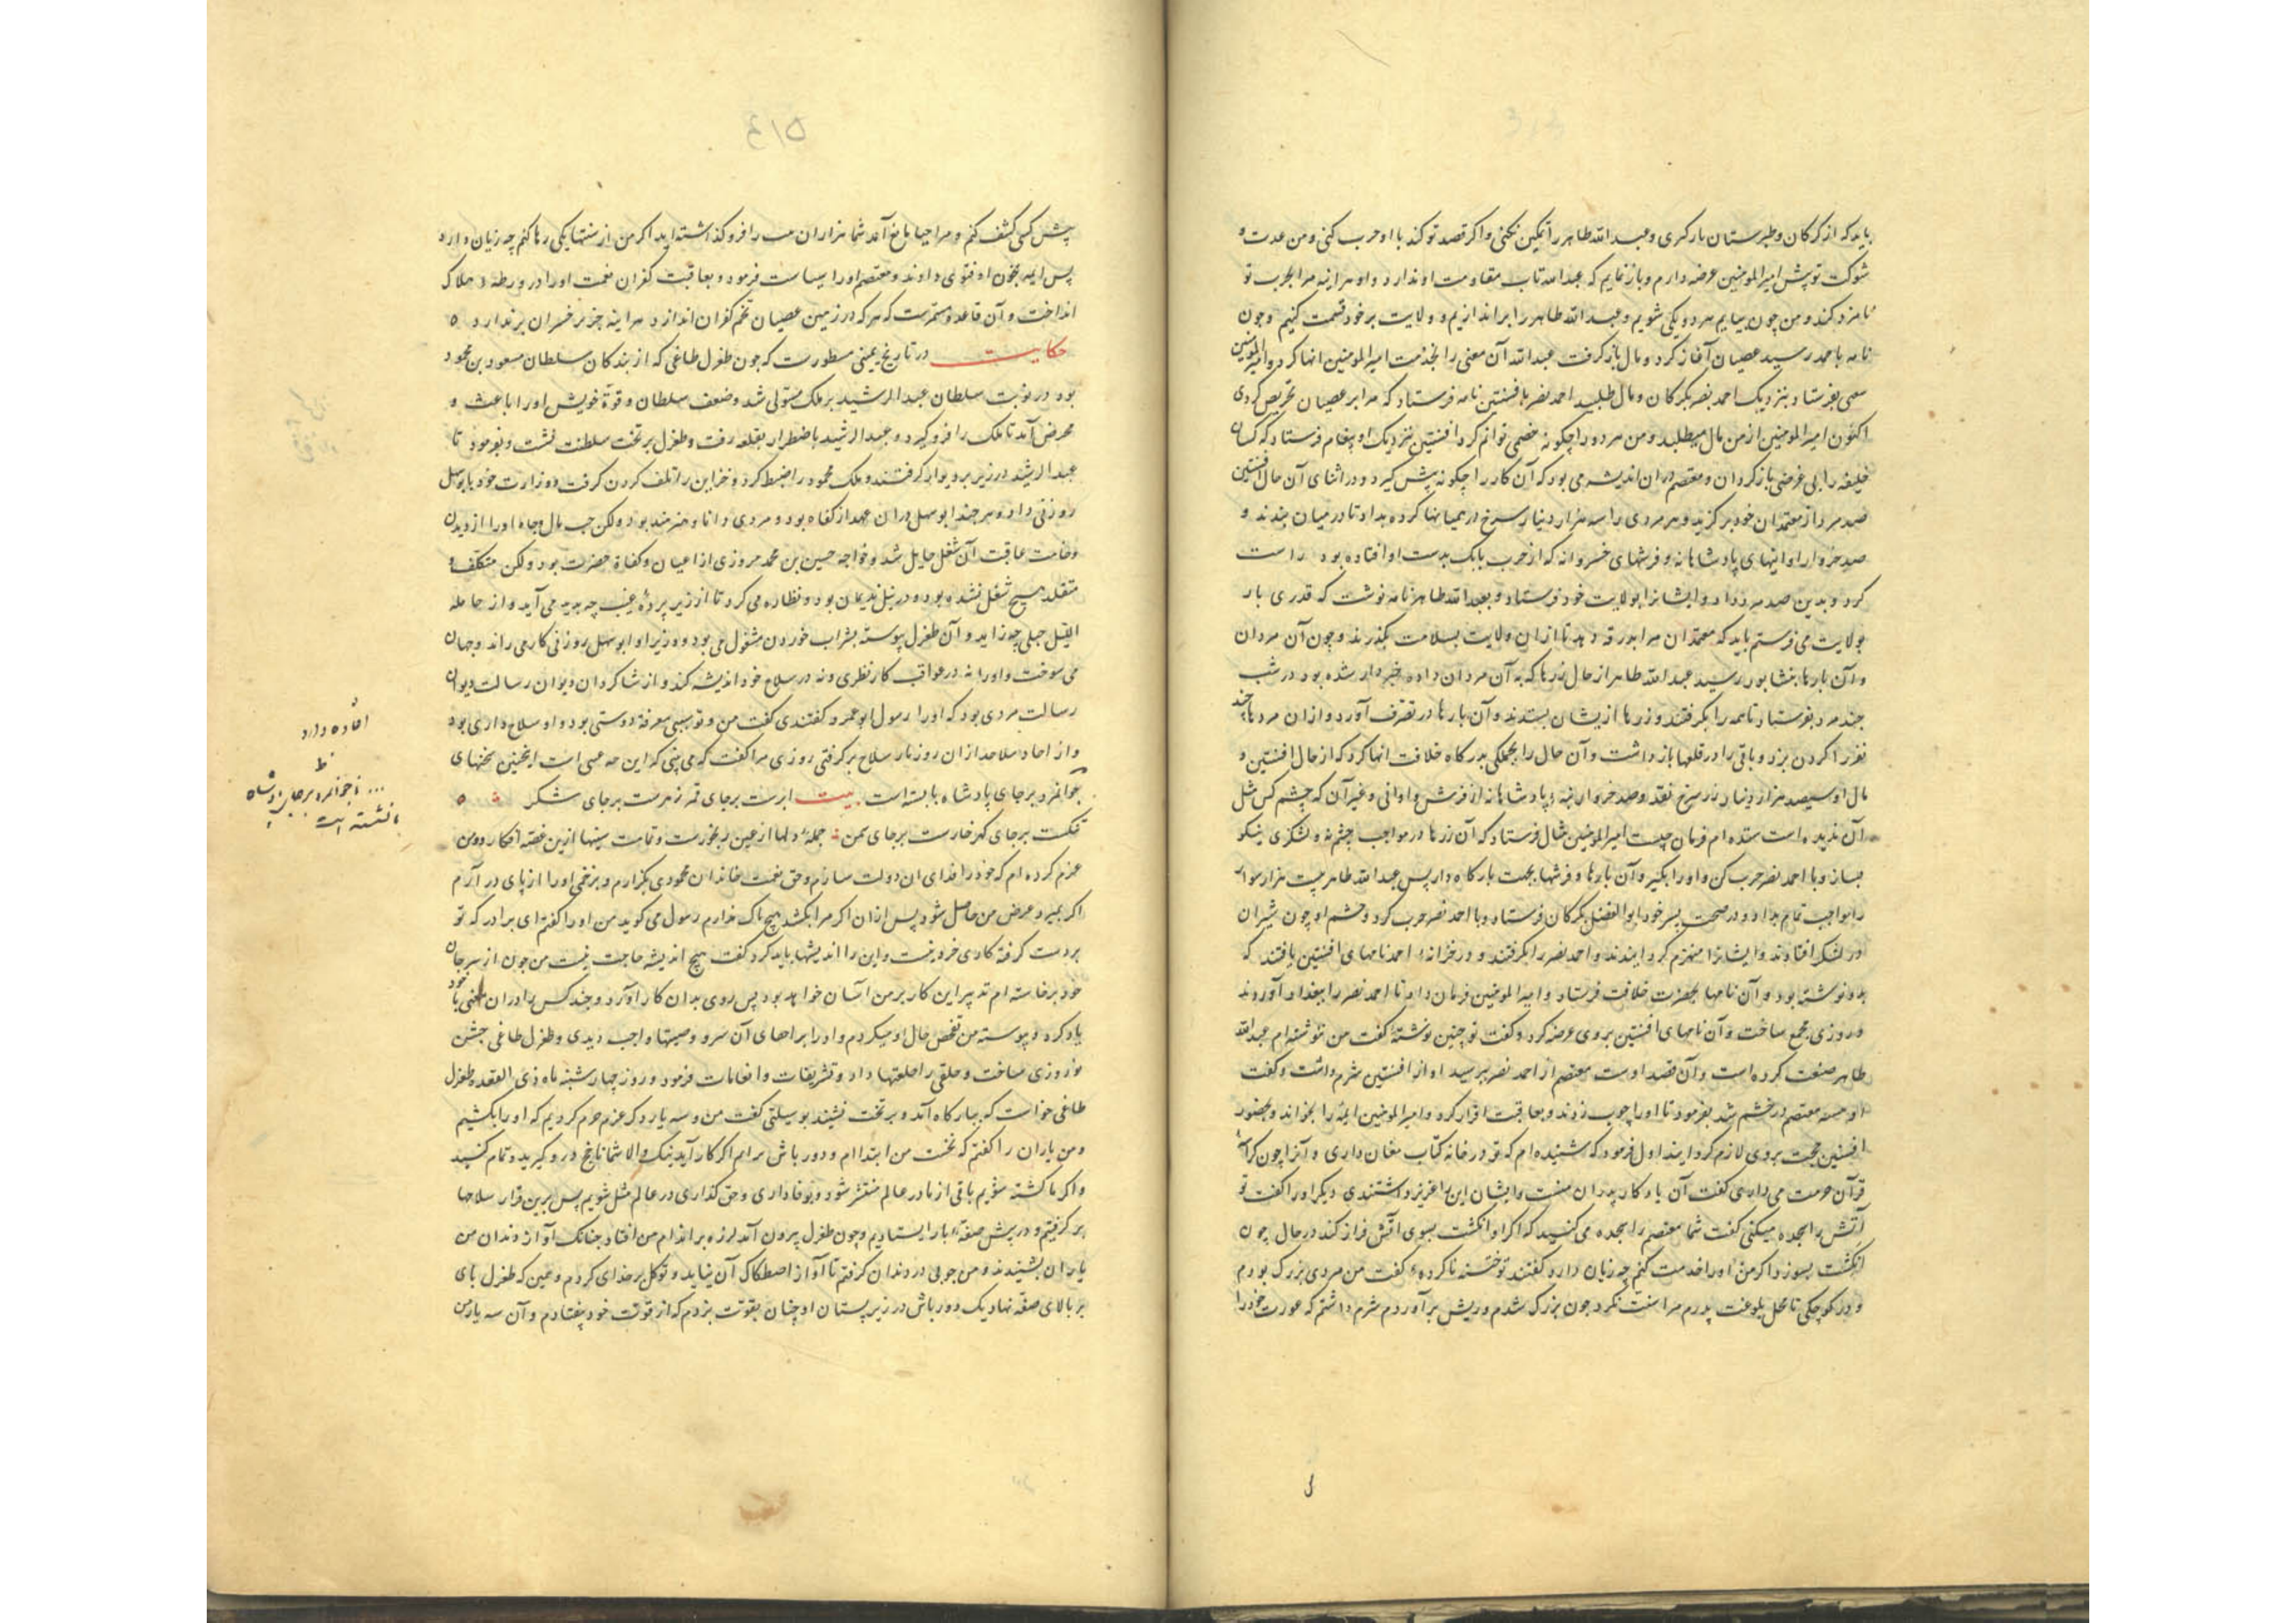 باید که از کرکان و طبرستان بار کری و عبد الله طاهر را تمکین نکنی و اکر قصد تو کند با او حرب کنی و من عدت و
شوکت تو پیش امیر المومنین عرضه دارم و باز نمایم که عبد الله تاب مقاومت او ندارد و او هر اینه مرا بحرب تو
نامزد کند و من چون بیایم هر دو یکی شویم و عبد الله طاهر را براندازیم و ولایت بر خود قسمت کنیم و چون
نامه باحمد رسید عصیان آغاز کرد و مال باز کرفت عبد الله آن معنی را بخدمت امیر المومنین انها کرد و امیر المومنین
معی بفرستاد بنزدیک احمد نصر بکرکان و مال طلبید احمد نصر بافشین نامه فرستاد که مرا بر عصیان تحریص کردی
اکنون امیر المومنین از من مال میطلبد و من هر دو را چکونه خصمی توانم کرد افشین بنزدیک او پیغام فرستاد که کسان
خلیفه را بی غرضی باز کردان و معتصم دران اندیشه می بود که آن کار را چکونه پیش کیرد و در اثنای آن حال افشین
صد مرد از معتمدان خود بر کزید و هر مردی را سه هزار دینار سرخ در همیانها کرده بداد تا در میان بندند و
صد خروار اوانیهای پادشاهانه و فرشهای خسروانه که از حرب بابک بدست او افتاده بود راست
کرد و بدین صد مرد داد و ایشانرا بولایت خود فرستاد و بعبد الله طاهر نامه نوشت که قدری بار
بولایت می فرستم باید که معتمدان مرا بدرقه دهد تا ازان ولایت بسلامت بکذرند و چون آن مردان
و آن بارها بنشابور رسید عبد الله طاهر از حال زرها که به آن مردان داده خبردار شده بود در شب
چند مرد بفرستاد تا همه را بکرفتند و زرها از یشان بستدند و آن بارها در تصرف آورد و ازان مردها چند
نفر را کردن بزد و باقی را در قلعها باز داشت و آن حال را بجملکی بدرکاه خلافت انها کرد که از حال افشین و
مال او سیصد هزار دینار زر سرخ نقد و صد خروار بنه پادشاهانه از فرش و اوانی و غیر آن که چشم کس مثل
آن ندیده است ستده ام فرمان چیست امیر المومنین مثال فرستاد که آن زرها در مواجب چشم نه و لشکری نیکو
بساز و با احمد نصر حرب کن و او را بکیر و آن بارها و فرشها بجهت بارکاه دار پس عبد الله طاهر بیست هزار سوار
را مواجب تمام بداد و در صحبت پسر خود ابو الفضل بکرکان فرستاد و با احمد نصر حرب کرد و حشم او چون شیران
در لشکر افتادند و ایشانرا منهزم کردانیدند و احمد نصر را بکرفتند و در خزانه احمد نامهای افشین یافتند که
بدو نوشته بود و آن نامها بحضرت خلافت فرستاد و امیر المومنین فرمان داد تا احمد نصر را ببغداد آوردند
و روزی مجمع ساخت و آن نامهای افشین بروی عرضه کرد و کفت تو چنین نوشته کفت من ننوشته ام عبد الله
طاهر صنعت کرده است و آن قصد اوست معتصم از احمد نصر بپرسید او از افشین شرم داشت و کفت
معتصم در خشم شد بفرمود تا او را چوب زدند و بعاقبت اقرار کرد و امیر المومنین ایمه را بخواند و بحضور
افشین حجت بروی لازم کردانید اول فرمود که شنیده ام که تو در خانه کتاب مغان داری و آنرا چون کراسه
قرآن حرمت می داری کفت آن یادکار پدران منست و ایشان این را عزیز داشتندی دیکر او را کفت تو
آتش را سجده میکنی کفت شما معتصم را سجده می کنید که اکر او انکشت بسوی آتش فراز کند در حال چون
انکشت بسوزد اکر من او را خدمت کنم چه زیان دارد کفتند تو ختنه ناکرده کفت من مردی بزرک بودم
و در کوچکی تا محل بلوغت پدرم مرا سنت نکرد چون بزرک شدم و ریش بر آوردم شرم داشتم که عورت خود را
۵۱۴
پیش کسی کشف کنم و مرا حیا مانع آمد شما هزاران سنت را فرو کذاشته اید اکر من از سنتها یکی رها کنم چه زیان دارد
پس ایمه بخون او فتوی دادند و معتصم او را سیاست فرمود و بعاقبت کفران نعمت او را در ورطه هلاک
انداخت و آن قاعده مستمرست که هر که در زمین عصیان تخم کفران اندازد هر اینه جز بر خسران برندارد
حکایت در تاریخ یمینی مسطورست که چون طغرل طاغی که از بندکان سلطان مسعود بن محمود
بود در نوبت سلطان عبد الرشید بر ملک مستولی شد و ضعف سلطان و قوة خویش او را باعث و
محرض آمد تا ملک را فرو کیرد و عبد الرشید باضطرار بقلعه رفت و طغرل بر تخت سلطنت نشست و بفرمود تا
عبد الرشید در زیر بر دیوار کرفتند و ملک محمود را ضبط کرد و خزاین را تلف کردن کرفت و وزارت خود بابو سهل
روزنی داد و هر چند ابو سهل دران عهد از کفاه بود و مردی دانا و هنرمند بود ولکن حب مال و جاه او را از دیدن
وخامت عاقبت آن شغل حایل شد و خواجه حسین بن محمد مروزی از اعیان و کفاة حضرت بود ولکن متکلف و
متقلد هیچ شغل نشده بود و در نیل ندیمان بود و نظاره می کرد تا از زیر پرده غیب چه پدید می آید و از حامله
اللیل حبلی چه زاید و آن طغرل پیوسته بشراب خوردن مشغول می بود و وزیر او ابو سهل روزنی کار می راند و جهان
می سوخت و او را نه در عواقب کار نظری و نه در سلاح خود اندیشه کند و از شاکردان دیوان رسالت دیوان
رسالت مردی بود که او را رسول ابو عمرو کفتندی کفت من و تو سببی معرفة دوستی بود و او سلاح داری بود
و از احاد سلاحداران روزبار سلاح بر کرفتی روزی مرا کفت که می بینی که این چه عیبی است اینچنین سخنهای
جوانمرد بر جای پادشاه بایسته است بیت ابرست بر جای قمر زهرست بر جای شکر
سنکست بر جای کهر خارست بر جای سمن جمله دلها ازین رنجورست و تمامت سینها ازین غصه افکار و من
عزم کرده ام که خود را فدای ان دولت سازم و حق نعمت خاندان محمودی بکزارم و بزخمی او را از پای در آرم
اکر بمیرد غرض من حاصل شود پس ازان اکر مرا بکشد هیچ باک ندارم رسول می کوید من او را کفتم ای برادر که تو
بر دست کرفته کاری خرد نیست و این را اندیشها باید کرد کفت هیچ اندیشه حاجت نیست من چون از سر جان
خود برخاسته ام تدبیر این کار بر من آسان خواهد بود پس روی بدان کار آورد و چند کس را دران معنی با خود
یاد کرد و پیوسته من تفحص حال او میکردم و او را بر اخفای آن سر و وصیتها واجب دیدی و طغرل طاغی جشن
نوروزی ساخت و خلقی را خلعتها داد و تشریفات و انعامات فرمود و روز چهارشنبه ماه ذی القعده طغرل
طاغی خواست که ببارکاه آید و بر تخت نشیند بوسیلتی کفت من و سه یار دکر عزم جزم کردیم که او را بکشیم
و من یاران را کفتم که نخست من ابتدا ام و دور باش برانم اکر کار آید نیک والا شما ناچخ در و کیرید و تمام کنید
و اکر ما کشته شویم باقی از ما در عالم منتشر شود و بوفاداری و حق کذاری در عالم مثل شویم پس برین قرار سلاحها
بر کرفتیم و در پیش صفه بار ایستادیم و چون طغرل بیرون آمد لرزه بر اندام من افتاد چنانک آواز دندان من
یاران بشنیدند و من چوبی در دندان کرفتم تا آواز اصطکاک آن نیاید و توکل بر خدای کردم و همین که طغرل پای
بر بالای صفه نهاد یک دور باش در زیر پستان او چنان بقوت بزدم که از قوت خود بیفتادم و آن سه یار من
افتاده دارد
ظ
... ناجوانمرد بر جای پادشاه
نشسته است